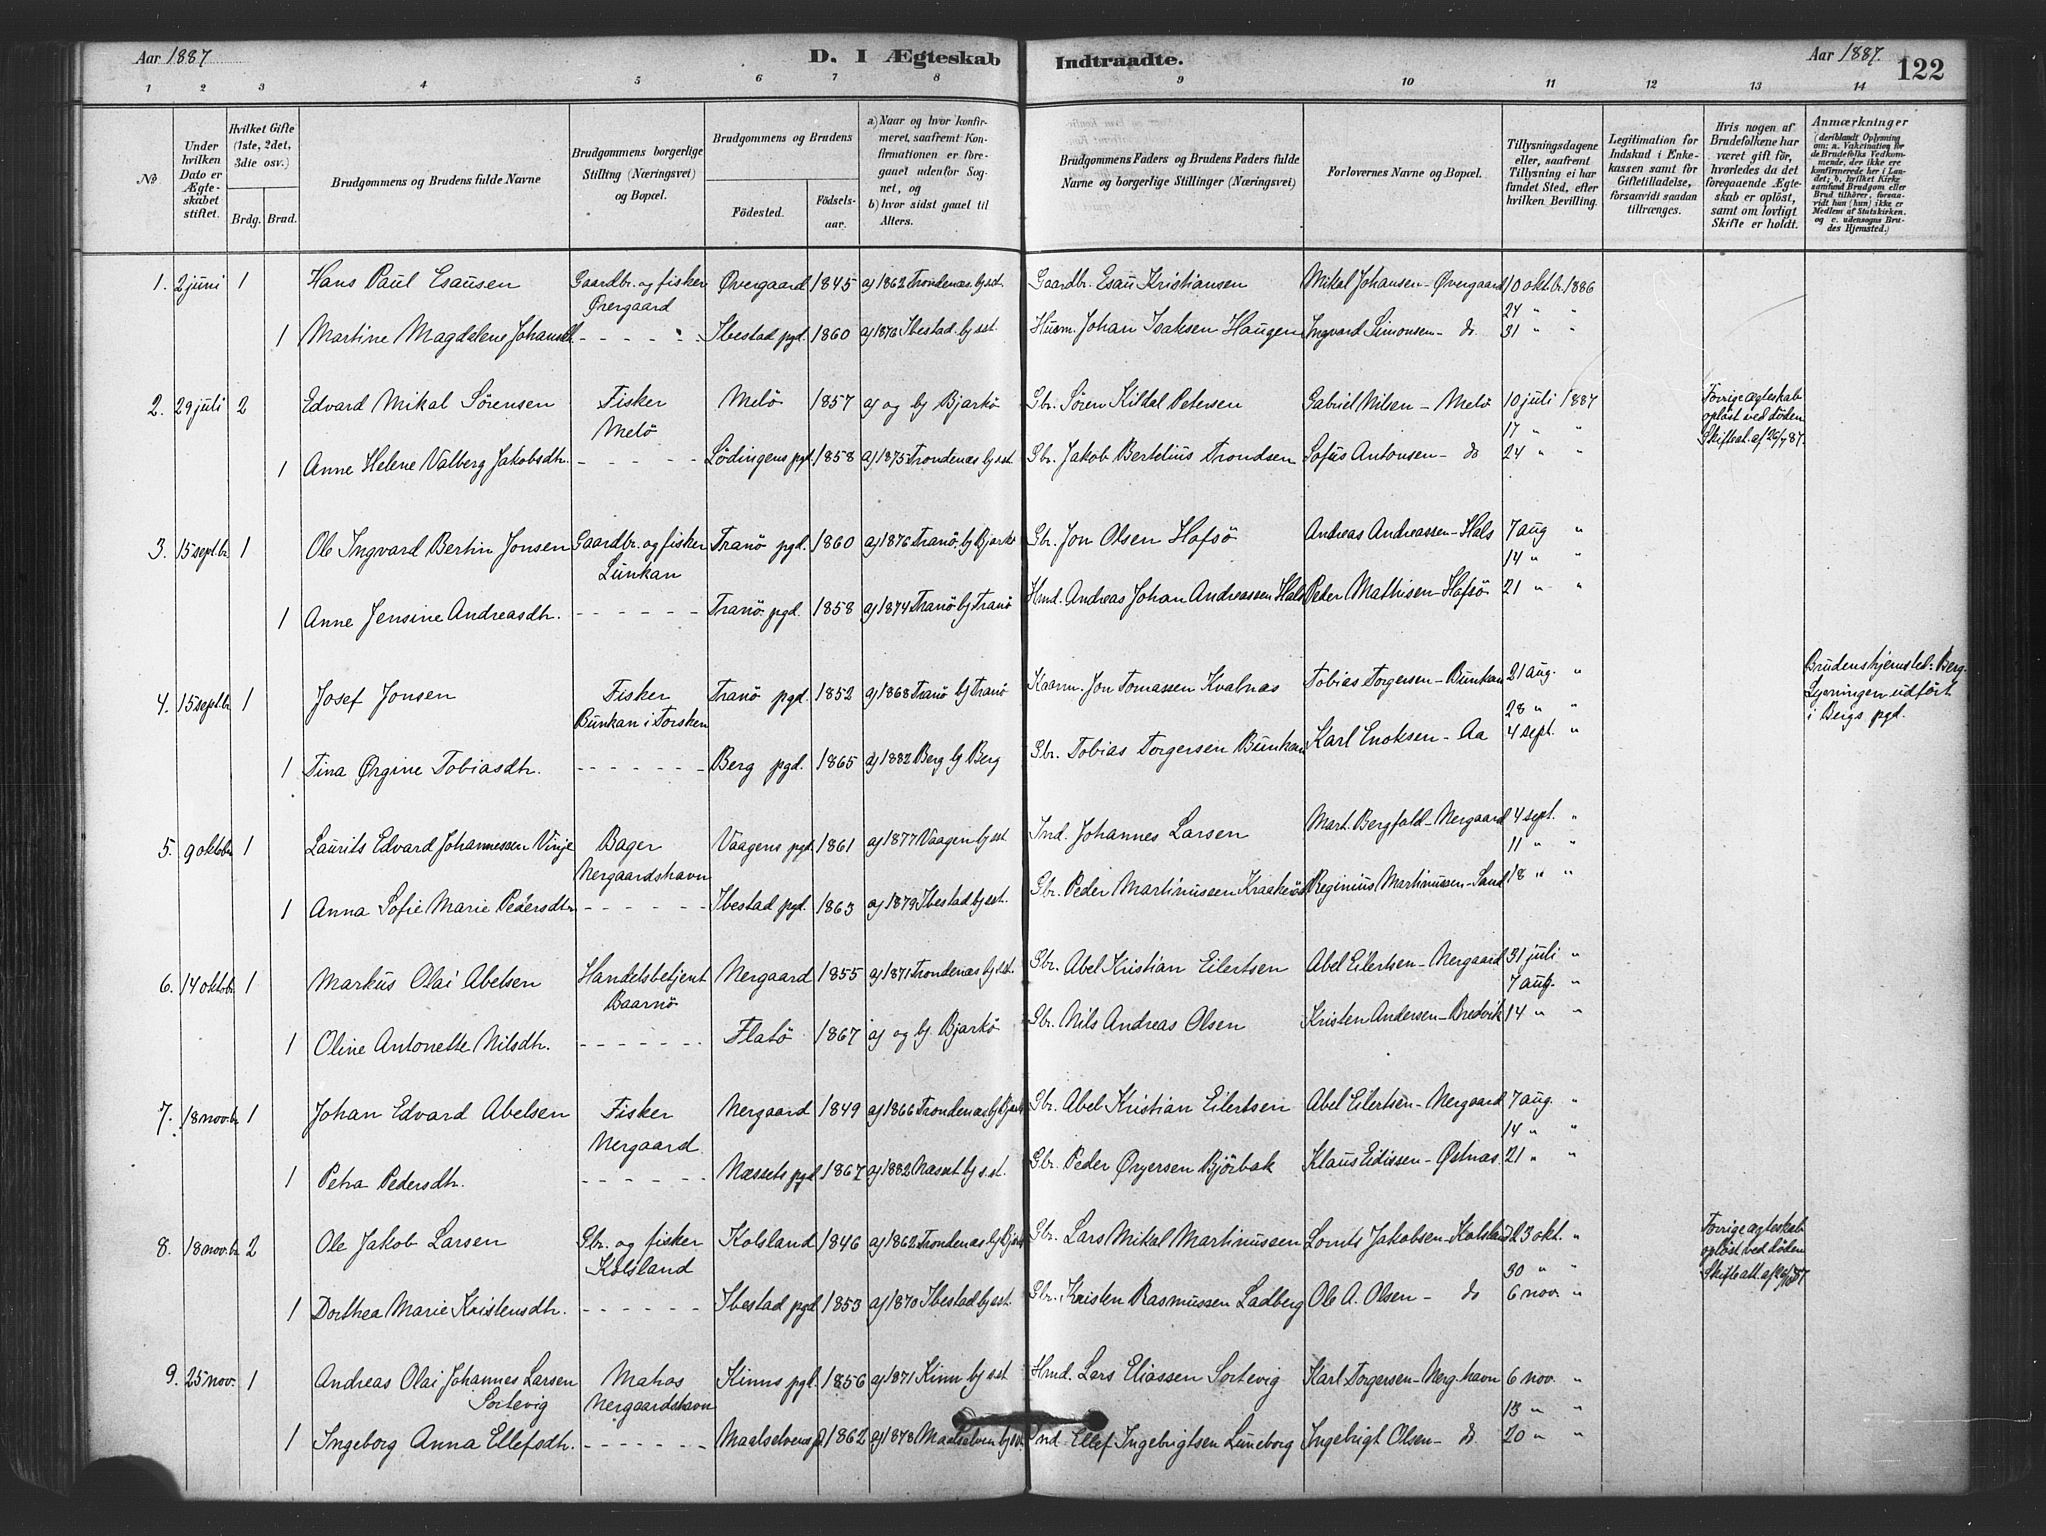 Aar 1887 D. I Ægteskab Indtraadte. Aar 1887. 122
1 2 3 4 5 6 7 8 9 10 11 12 13 14
No
Under hvilken Dato er Ægteskabet stiftet.
Hvilket Gifte (1ste, 2det, 3die osv.)
Brdg. Brud.
Brudgommens og Brudens fulde Navne
Brudgommens borgerlige Stilling (Næringsvei) og Bopæl.
Brudgommens og Brudens
Födested. Födselsaar.
a) Naar og hvor konfirmeret, saafremt Konfirmationen er foregaaet udenfor Sognet, og
b) hvor sidst gaaet til Alters.
Brudgommens Faders og Brudens Faders fulde Navne og borgerlige Stillinger (Næringsvei)
Forlovernes Navne og Bopæl.
Tillysningsdagene eller, saafremt Tillysning ei har fundet Sted, efter hvilken Bevilling.
Legitimation for Indskud i Enkekassen samt for Giftetilladelse, forsaavidt saadan tiltrænges.
Hvis nogen af Brudefolkene har været gift för, hvorledes da det foregaaende Ægteskab er oplöst, samt om lovligt Skifte er holdt.
Anmærkninger (deriblandt Oplysning om: a. Vakcination for de Brudefolks Vedkommende, der ikke ere konfirmerede her i Landet; b. hvilket Kirkesamfund Brudgom eller Brud tilhörer, forsaavidt han (hun) ikke er Medlem af Statskirken, og c. udensogns Brudes Hjemsted.)
1. 2 juni 1 Hans Paul Esausen Gaardbr. og fisker Øvergaard 1845 a) 1862 Trondenæs b) sst. Gaardbr. Esau Kristiansen Mikal Johansen - Øvergaard 10 oktbr. 1886
Øvergaard 24 " "
1 Martine Magdelene Johansdtr. - - - - - Ibestad pgd. 1860 a) 1876 Ibestad b) sst. Husm. Johan Isaksen Haugen Ingvard Simonsen - do 31 " "
2. 29 juli 2 Edvard Mikal Sörensen Fisker Melö 1857 a) og b) Bjarkö Gbr. Sören Kildal Petersen Gabriel Nilsen - Melö 10 juli 1887 Forrige ægteskab
Melö 17 " " oplöst ved döden
1 Anne Helene Valberg Jakobsdtr. - - - - - Lödingens pgd. 1858 a) 1875 Trondenæs b) sst. Gbr. Jakob Bertelius Trondsen Sofus Antonsen - do 24 " " Skifteat. af 26/7 87.
3. 15 septbr. 1 Ole Ingvard Bertin Jonsen Gaardbr. og fisker Tranö pgd. 1860 a) 1876 Tranö b) Bjarkö Gbr. Jon Olsen Hofsö Andreas Andreassen - Hals 7 aug "
Lunkan 14 " "
1 Anne Jensine Andreasdtr. - - - - - Tranö pgd. 1858 a) 1874 Tranö b) Tranö Hmd. Andreas Johan Andreassen Hals Peder Mathisen - Hofsö 21 " "
4. 15 septbr. 1 Josef Jonsen Fisker Tranö pgd. 1852 a) 1868 Tranö b) Tranö Kaarm. Jon Tomassen Kvalnas Tobias Torgersen - Bunkan 21 aug. " Brudens hjemsted: Berg.
Bunkan i Torsken 28 " " Lysningen udfört
1 Tina Örgine Tobiasdtr. - - - - - Berg pgd. 1865 a) 1882 Berg b) Berg Gbr. Tobias Torgersen Bunkan Karl Enoksen - Aa 4 sept. " i Bergs pgd.
5. 9 oktober 1 Laurits Edvard Johannessen Vinje Bager Vaagens pgd 1861 a) 1877 Vaagen b) sst Ind. Johannes Larsen Mart. Bergfald - Nergaard 4 sept. "
Nergaardshavn 11 " "
1 Anna Sofie Marie Pedersdtr. - - - - - Ibestad pgd. 1863 a) 1879 Ibestad b) sst. Gbr. Peder Martinussen Kraakerö Reginius Martinussen - Sand 18 " "
6. 14 oktobr 1 Markus Olai Abelsen Handelsbetjent Nergaard 1855 a) 1871 Trondenæs b) sst. Gbr. Abel Kristian Eilertsen Abel Eilertsen - Nergaard 31 juli "
Baarnö 7 aug. "
1 Oline Antonette Nilsdtr. - - - - - Flatö 1867 a) og b) Bjarkö Gbr. Nils Andreas Olsen Kristen Andersen - Bredvik 14 " "
7. 18 novbr. 1 Johan Edvard Abelsen Fisker Nergaard 1849 a) 1866 Trondenæs b) Bjarkö Gbr. Abel Kristian Eilertsen Abel Eilertsen - Nergaard 7 aug. "
Nergaard 14 " "
1 Petra Pedersdtr. - - - - - Næssets pgd 1867 a) 1882 Næsset b) s.st. Gbr. Peder Öryersen Björbak Klaus Eidissen - Østnas. 21 " "
8. 18 novbr. 2 Ole Jakob Larsen Gbr. og fisker Kolsland 1846 a) 1862 Trondenæs b) Bjarkö Gbr. Lars Mikal Martinussen Lornts Jakobsen - Kolsland 23 okt. " Forrige ægteskab
Kolsland 30 " " oplöst ved döden
1 Dorthea Marie Kristensdtr. - - - - - Ibestad pgd 1853 a) 1870 Ibestad b) sst. Gbr. Kristen Rasmussen Ladberg Ole A. Olsen - do 6 nov. " Skifteatt. af
9. 25 nov. 1 Andreas Olai Johannes Larsen Matros Kinns pgd. 1856 a) 1871 Kinn b) sst Hmd. Lars Eliassen Sortevig Karl Torgersen - Nerg. havn 6 nov. "
Sortevig Nergaardshavn 13 " "
1 Ingeborg Anna Ellefsdtr. - - - - - Maalselvens p 1862 a) 1878 Maalselven b) Ind. Ellef Ingebrigtsen Luneborg Ingebrigt Olsen - do. 20 " "